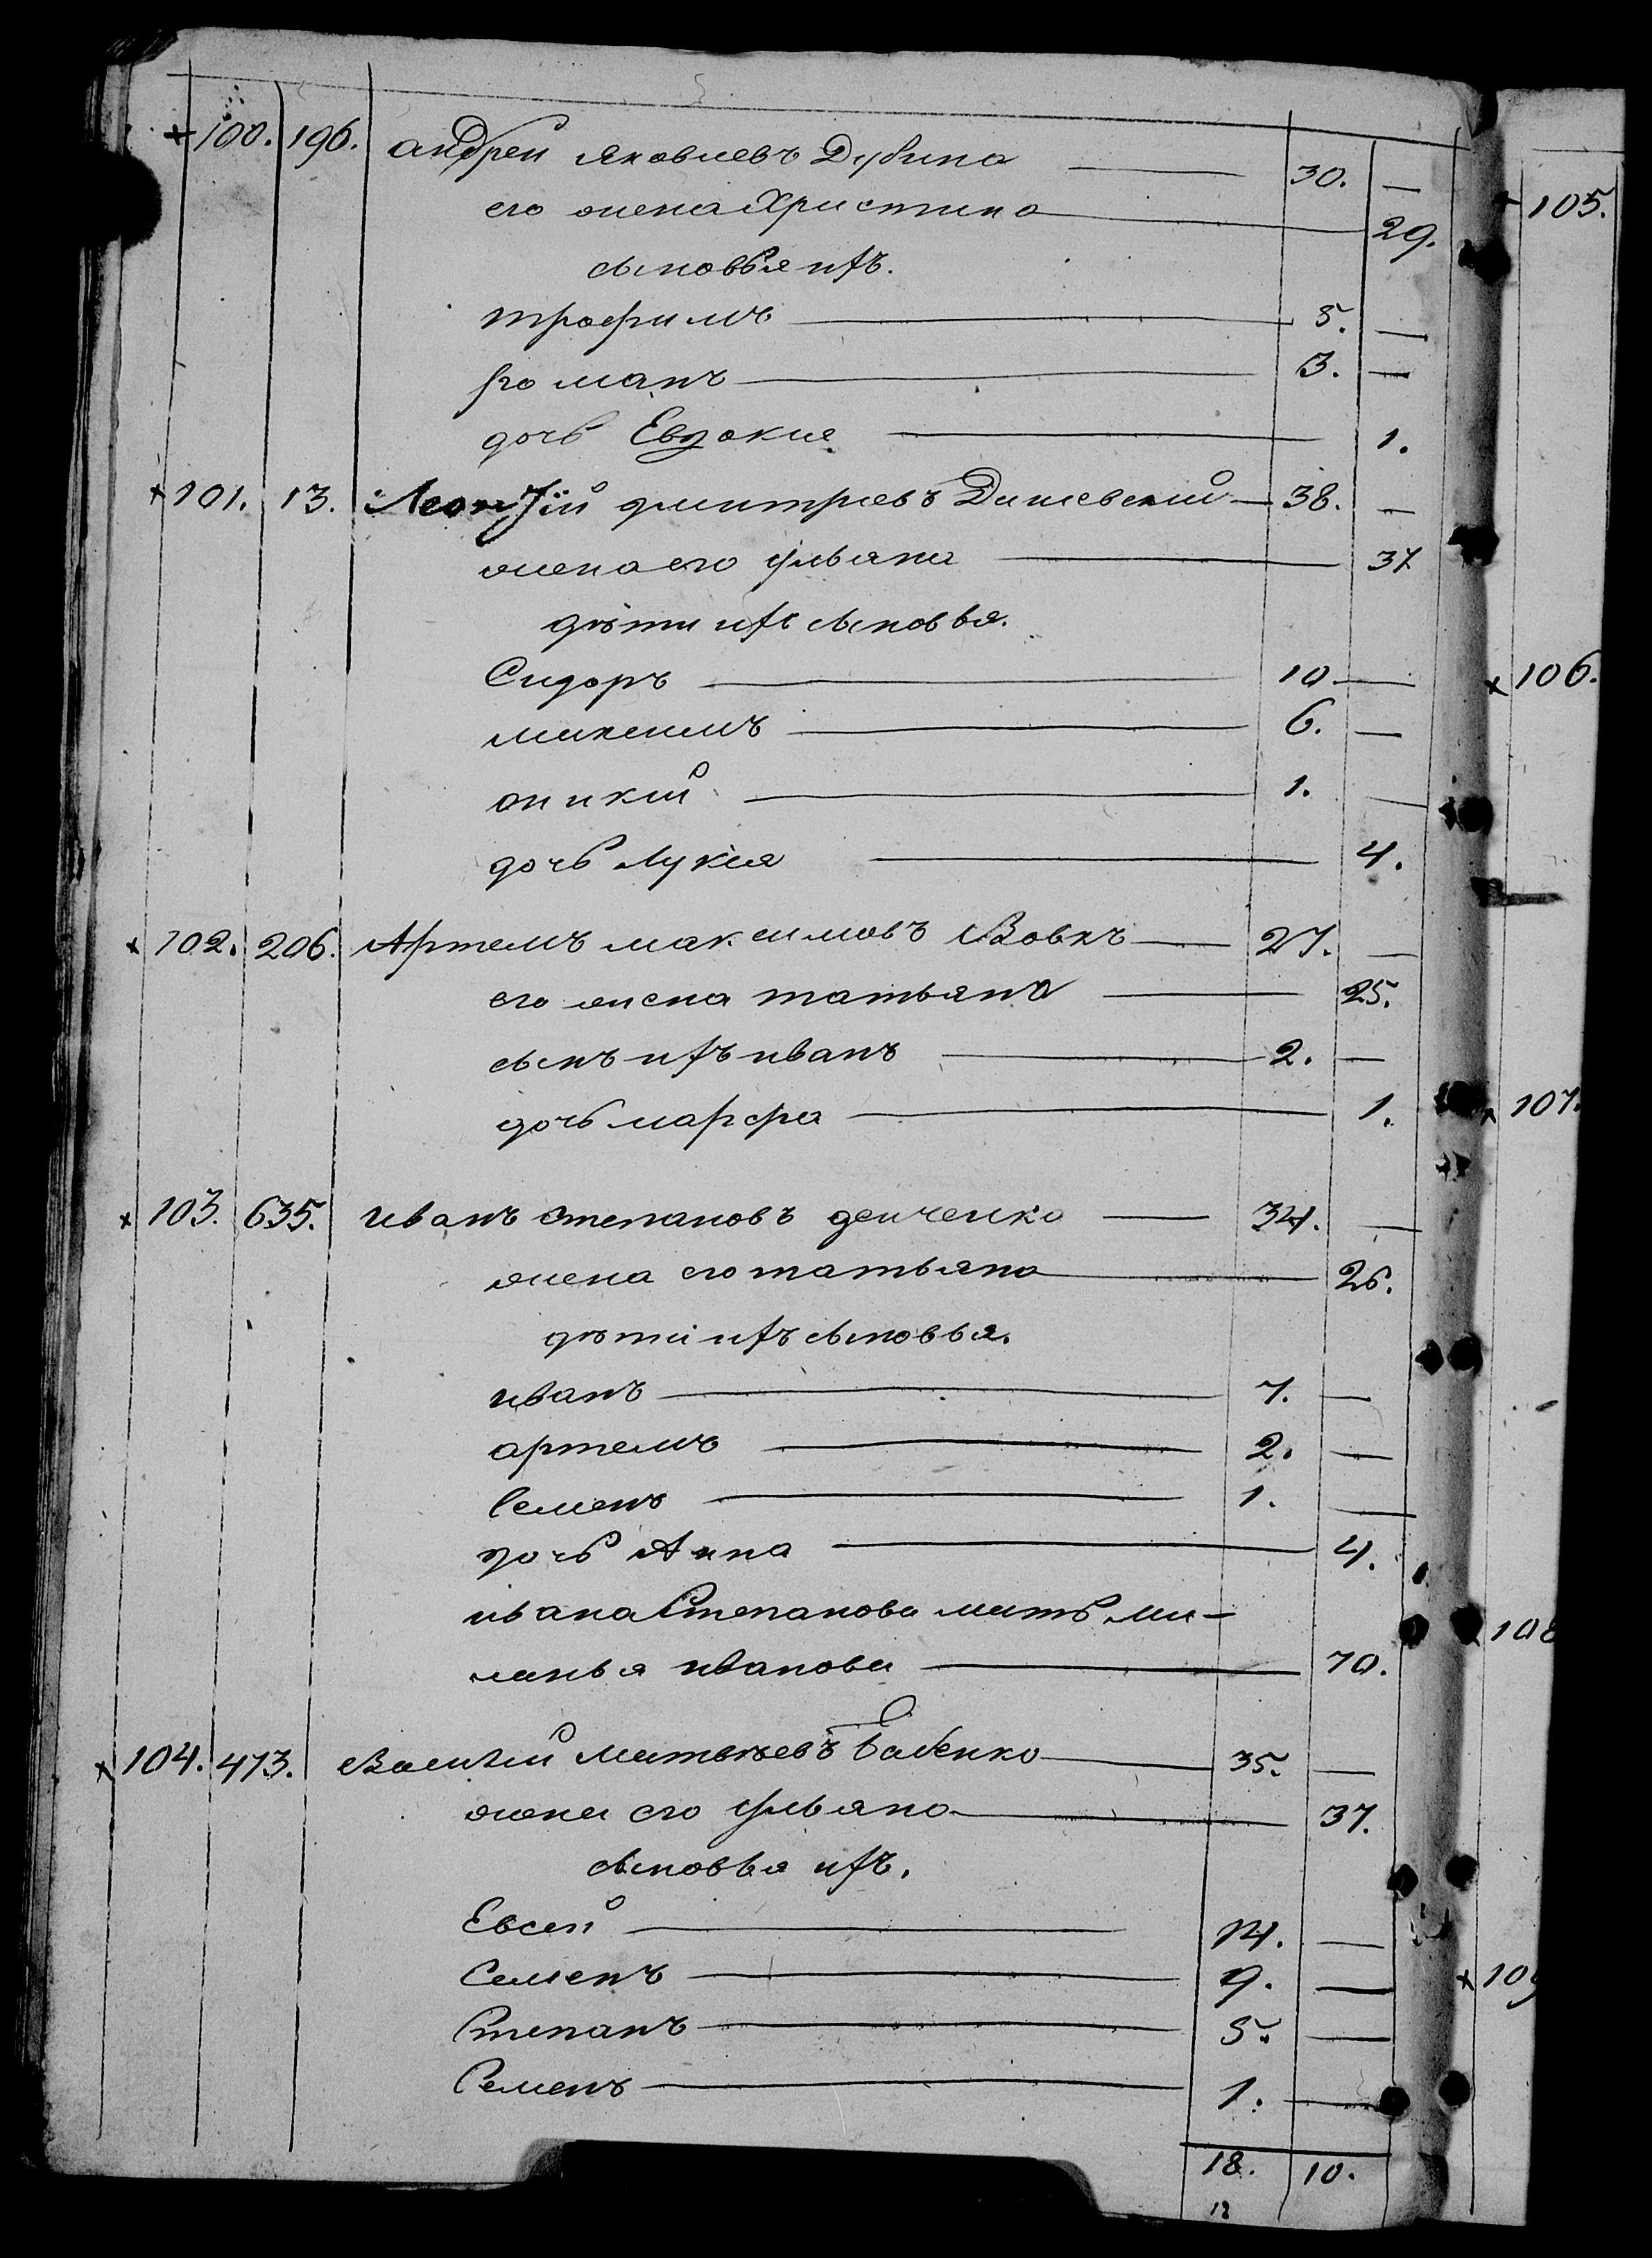 + 100. 196. андрей яковлевъ Дубина — 30. —
его жена Христина — 29.
сыновья ихъ.
трофимъ — 5. —
романъ — 3. —
дочь Евдокия — 1.
+ 101. 13. Леонтій дмитріевъ — 38. —
жена его ульяна — 37
дѣти ихъ сыновья.
Сидоръ — 10 —
максимъ — 6. —
оникій — 1. —
дочь Лукія — 4.
+ 102. 206. Артемъ максимовъ Вовкъ — 27. —
его жена татьяна — 25.
сынъ ихъ иванъ — 2. —
дочь марфа — 1.
+ 103. 635. иванъ степановъ демченко — 34. —
жена его татьяна — 26.
дѣти ихъ сыновья.
иванъ — 7. —
артемъ — 2. —
Семенъ — 1. —
дочь Анна — 4.
ивана Степанова мать ма-
ланья иванова — 70.
+ 104. 473. Василій матвѣевъ Бабенко — 35. —
жена его ульяна — 37.
сыновья ихъ.
Евсей — 14. —
Семенъ — 9. —
Степанъ — 5. —
Семенъ — 1. —
18. 10.
12
+ 105.
x 106.
x 107.
108
x 109